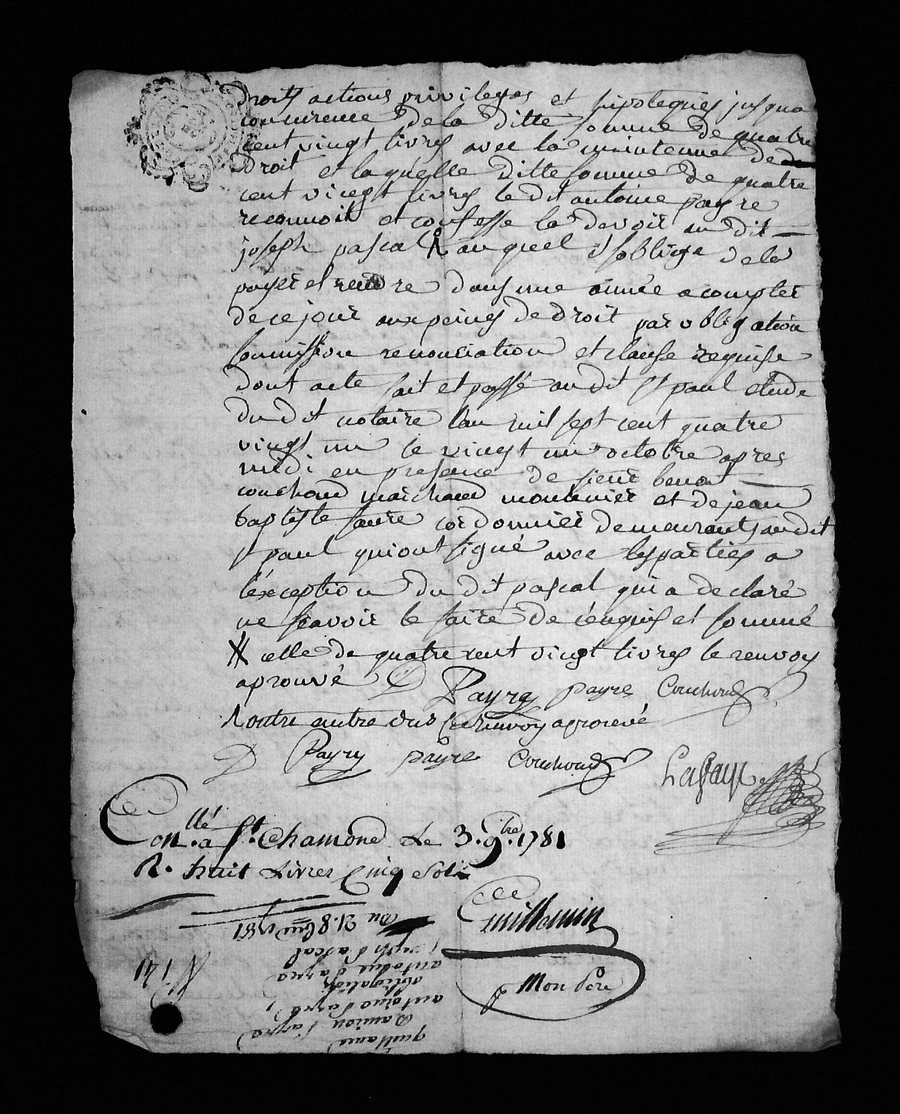 droits actions privileges et hipoteques jusqua
concurrence de la ditte somme de quatre
cent vingt livres avec la maintenue de
droit et laquelle ditte somme de quatre
cent vingt livres le dit antoine payre
reconnoit et confesse la devoir au dit
joseph pascal auquel s'oblige de la
payer et rendre dans une année a compter
de ce jour aux peines de droit par obligation
soumission renonciation et clause requise
dont acte fait et passé au dit St paul etude
du dit notaire l'an mil sept cent quatre
vingt un le vingt un octobre apres
midi en presence de sieur benoit
couchoud marchand moulinier et de jean
baptiste faure cordonnier demeurants au dit
St paul qui ont signé avec les parties a
l'exception du dit pascal qui a declaré
ne sçavoir le faire de ce enquis et sommé
# celle de quatre cent vingt livres le renvoy
aprouvé D Payre payre Couchoud
outre autre dus renvoy aprouvé
D Payre payre Couchoud
Conllé a St Chamond Le 3. 9bre. 1781
R. huit Livres Cinq Sols
Guillemin
p Mon Pere
Du 21. 8bre 1781
joseph Pascal
antoine Payre
obligation
antoine Payre
Damien Payre
quittance
No 141